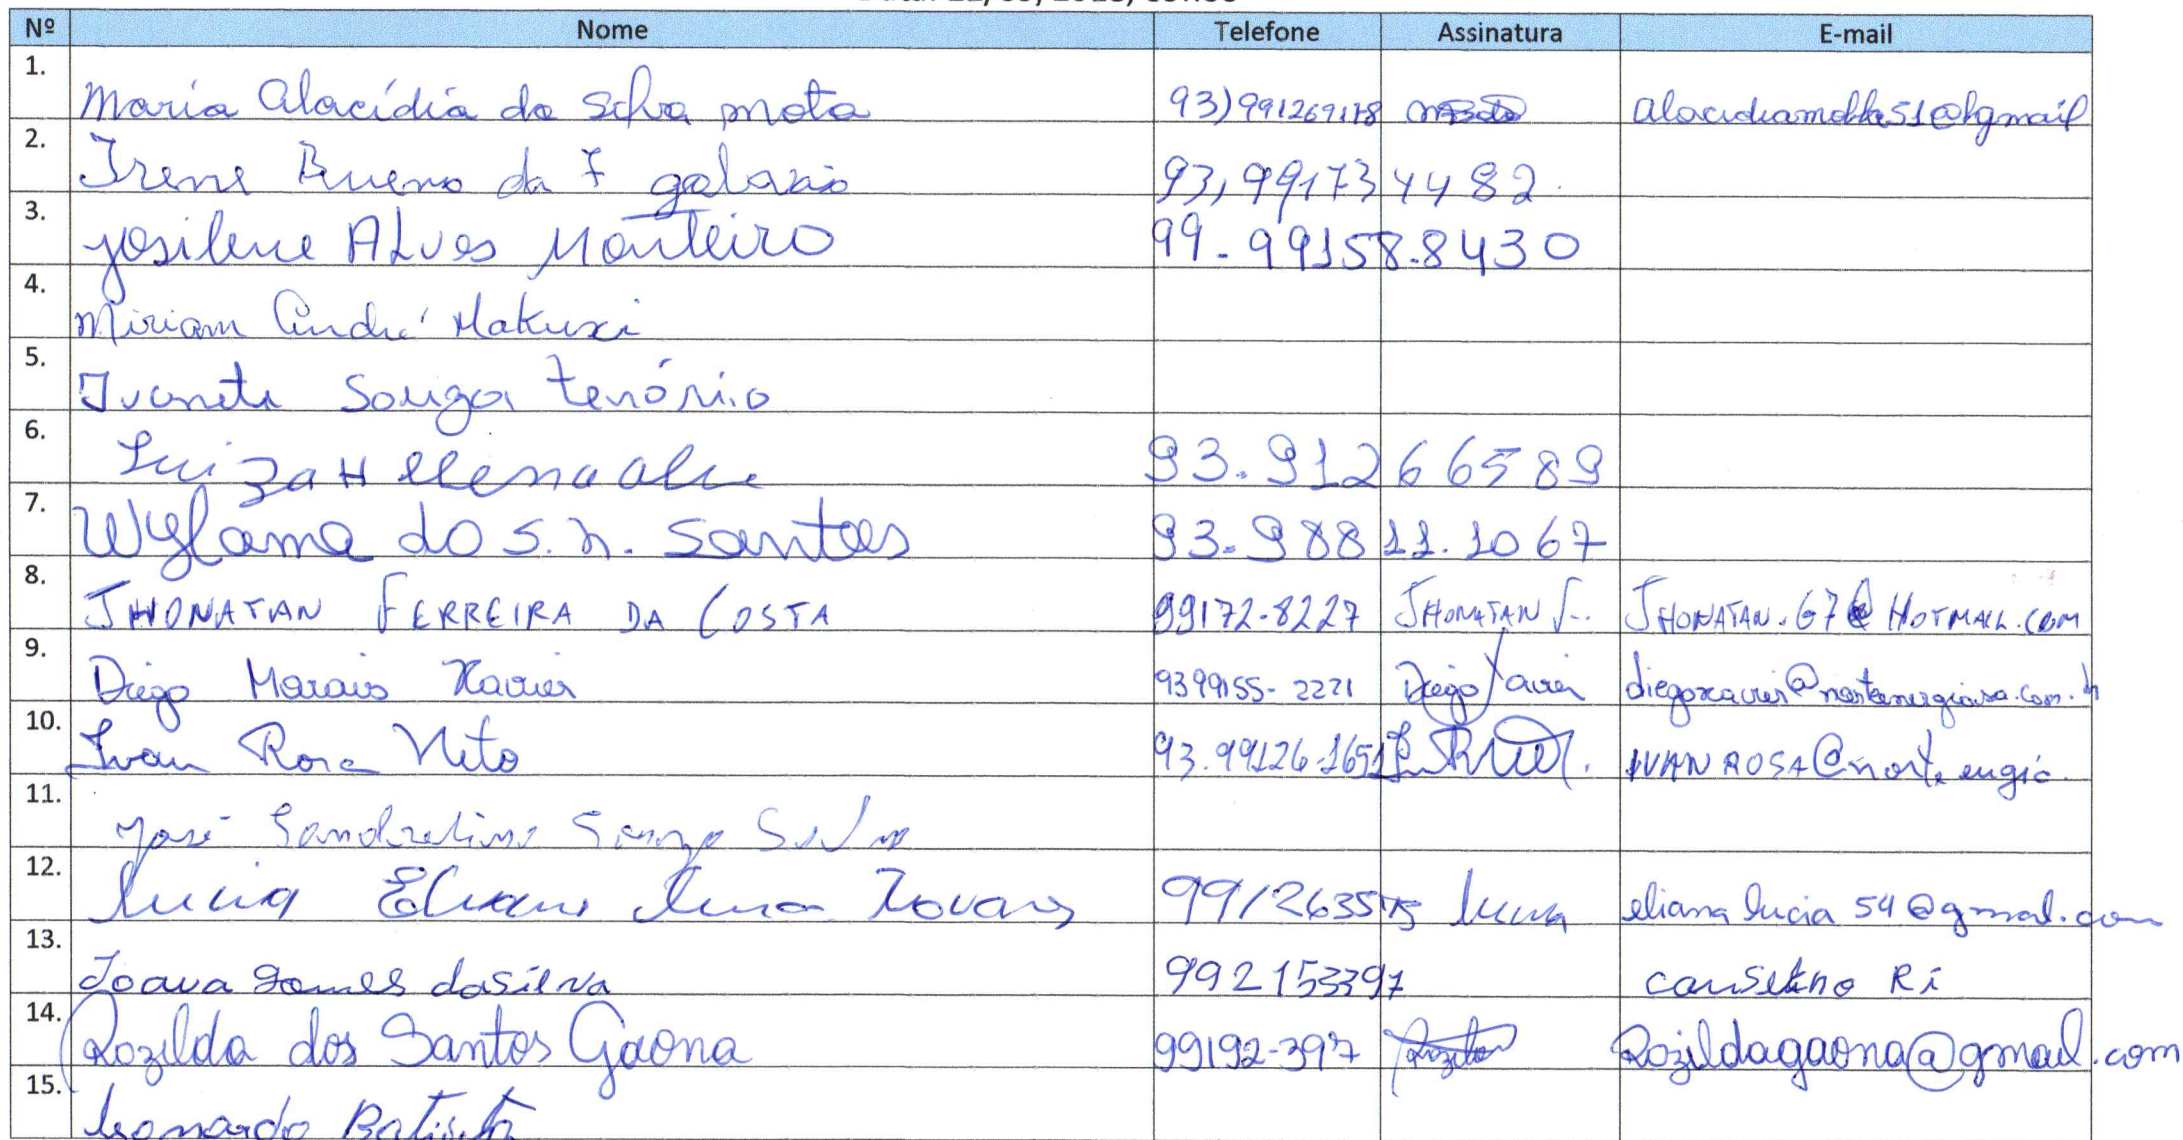 Nº Nome Telefone Assinatura E-mail
1. Maria Alacídia da Silva Mota 93)991269178 alacidiamotta51@hgmail
2. Irene Bueno da F galaxio 93,991734482
3. Josilene ALves Monteiro 99-99158.8430
4. Miriam André Makuxi
5. Ivonete Souza tenório
6. Luiza Hellena 93.91266589
7. do S. n. Santos 93-98811.1067
8. JHONATAN FERREIRA DA COSTA 99172-8227 JHONATAN JHONATAN.67@HOTMAIL.COM
9. Diego Morais Xavier 9399155-2221 Diego Xavier
10. Ivan Rosa Neto 93.99126.1651 IVANROSA@norte
11. José Souza Silva
12. Lucia 991263575 Lucia eliana lucia 54@gmal.com
13. Joava Gomes dasilva 992153397 Ri
14. Rozilda dos Santos Gaona 99192-397 Rozildagaona@gmail.com
15. Leonardo Batista